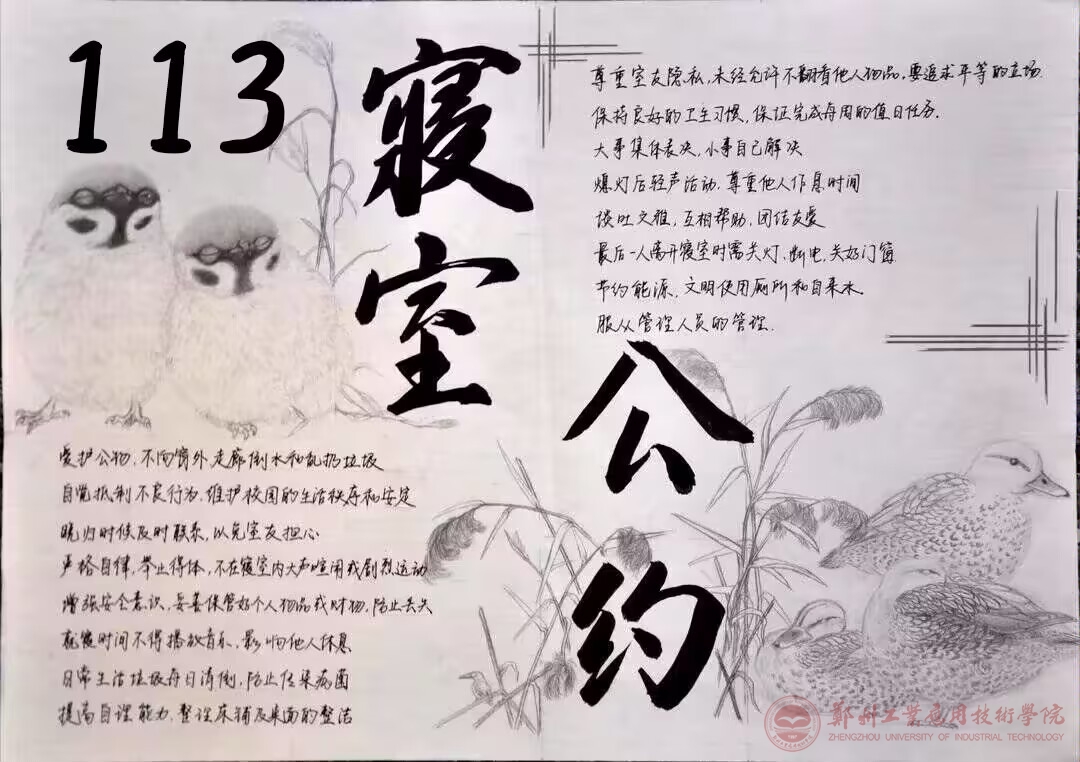 113
寝室公约
尊重室友隐私,未经允许不翻看他人物品,要追求平等的立场.
保持良好的卫生习惯,保证完成每周的值日任务.
大事集体表决,小事自己解决
熄灯后轻声活动,尊重他人作息时间
谈吐文雅,互相帮助,团结友爱
最后一人离开寝室时需关灯、断电,关好门窗
节约能源,文明使用厕所和自来水.
服从管理人员的管理.
爱护公物,不向窗外走廊倒水和乱扔垃圾
自觉抵制不良行为,维护校园的生活秩序和安定
晚归时候及时联系,以免室友担心
严格自律,举止得体,不在寝室内大声喧闹或剧烈运动
增强安全意识,妥善保管好个人物品或财物,防止丢失
就寝时间不得播放音乐,影响他人休息
日常生活垃圾每日清倒,防止传染病菌
提高自理能力,整理床铺及桌面的整洁
鄭州工業應用技術學院
ZHENGZHOU UNIVERSITY OF INDUSTRIAL TECHNOLOGY